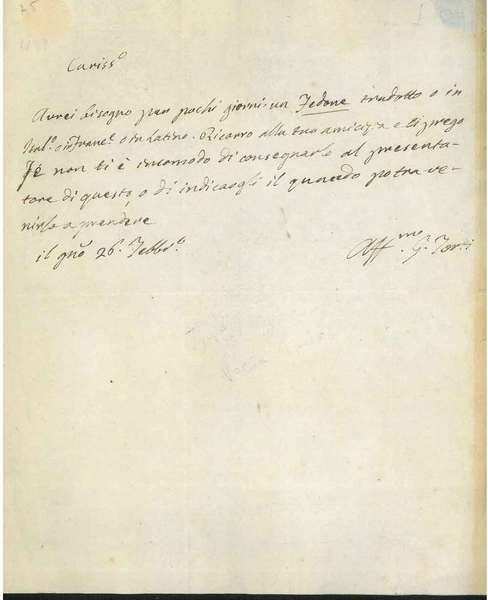 Cariss.o
Avrei bisogno per pochi giorni un Fedone tradotto o in
Ital.o o in Franc.e o in Latino. Ricorro alla tua amicizia e ti prego
se non ti è incomodo di consegnarlo al presenta-
tore di questo, o di indicargli il quando potrà ve-
nirlo a prendere
il gno 26. Febbr.o
Aff.mo G. Torti